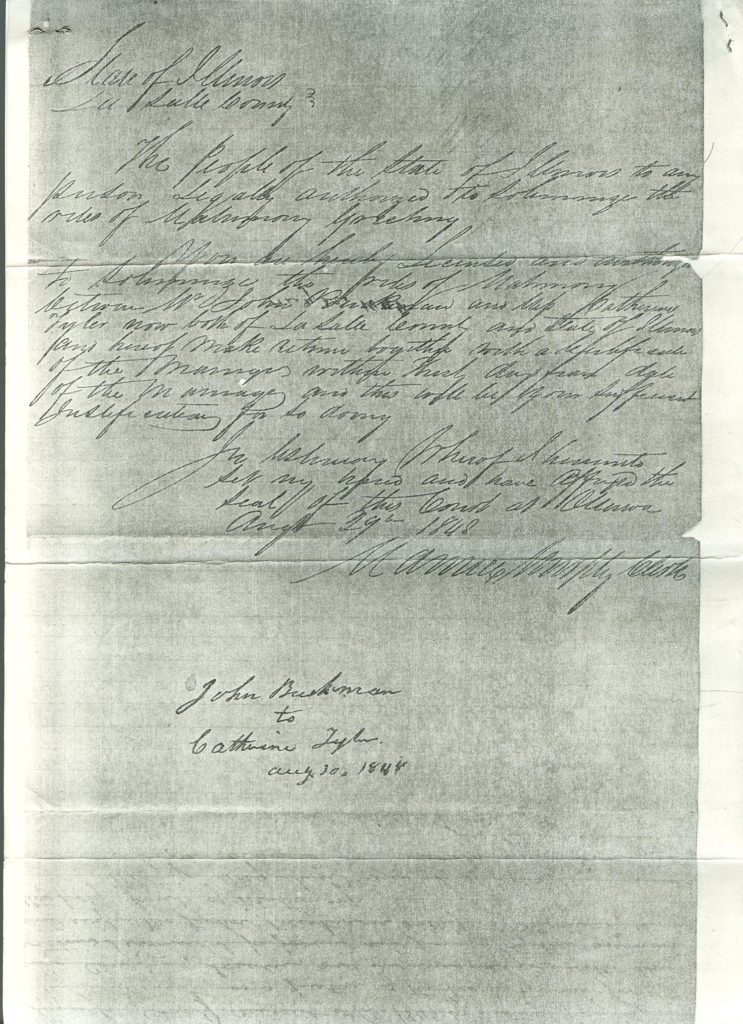 State of Illinois
La Salle County
The People of the State of Illinois to any
person Legally authorized to Solemnize the
rites of Matrimony Greeting
You are hereby Licensed and authorize
to Solemnize the rites of Matrimony
between Mr John and Catherine
Tyler now both of La Salle County and State of Illinois
and hereof make return together with a
of the Marriage within thirty days from date
of the Marriage and this will be your sufficient
for so doing
In testimony Whereof I hereunto
set my hand and have affixed the
Seal of this Court at Ottawa
Augt 29th 1848
Murphy Clerk
John Buckman
to
Catherine Tyler.
aug. 30, 1848